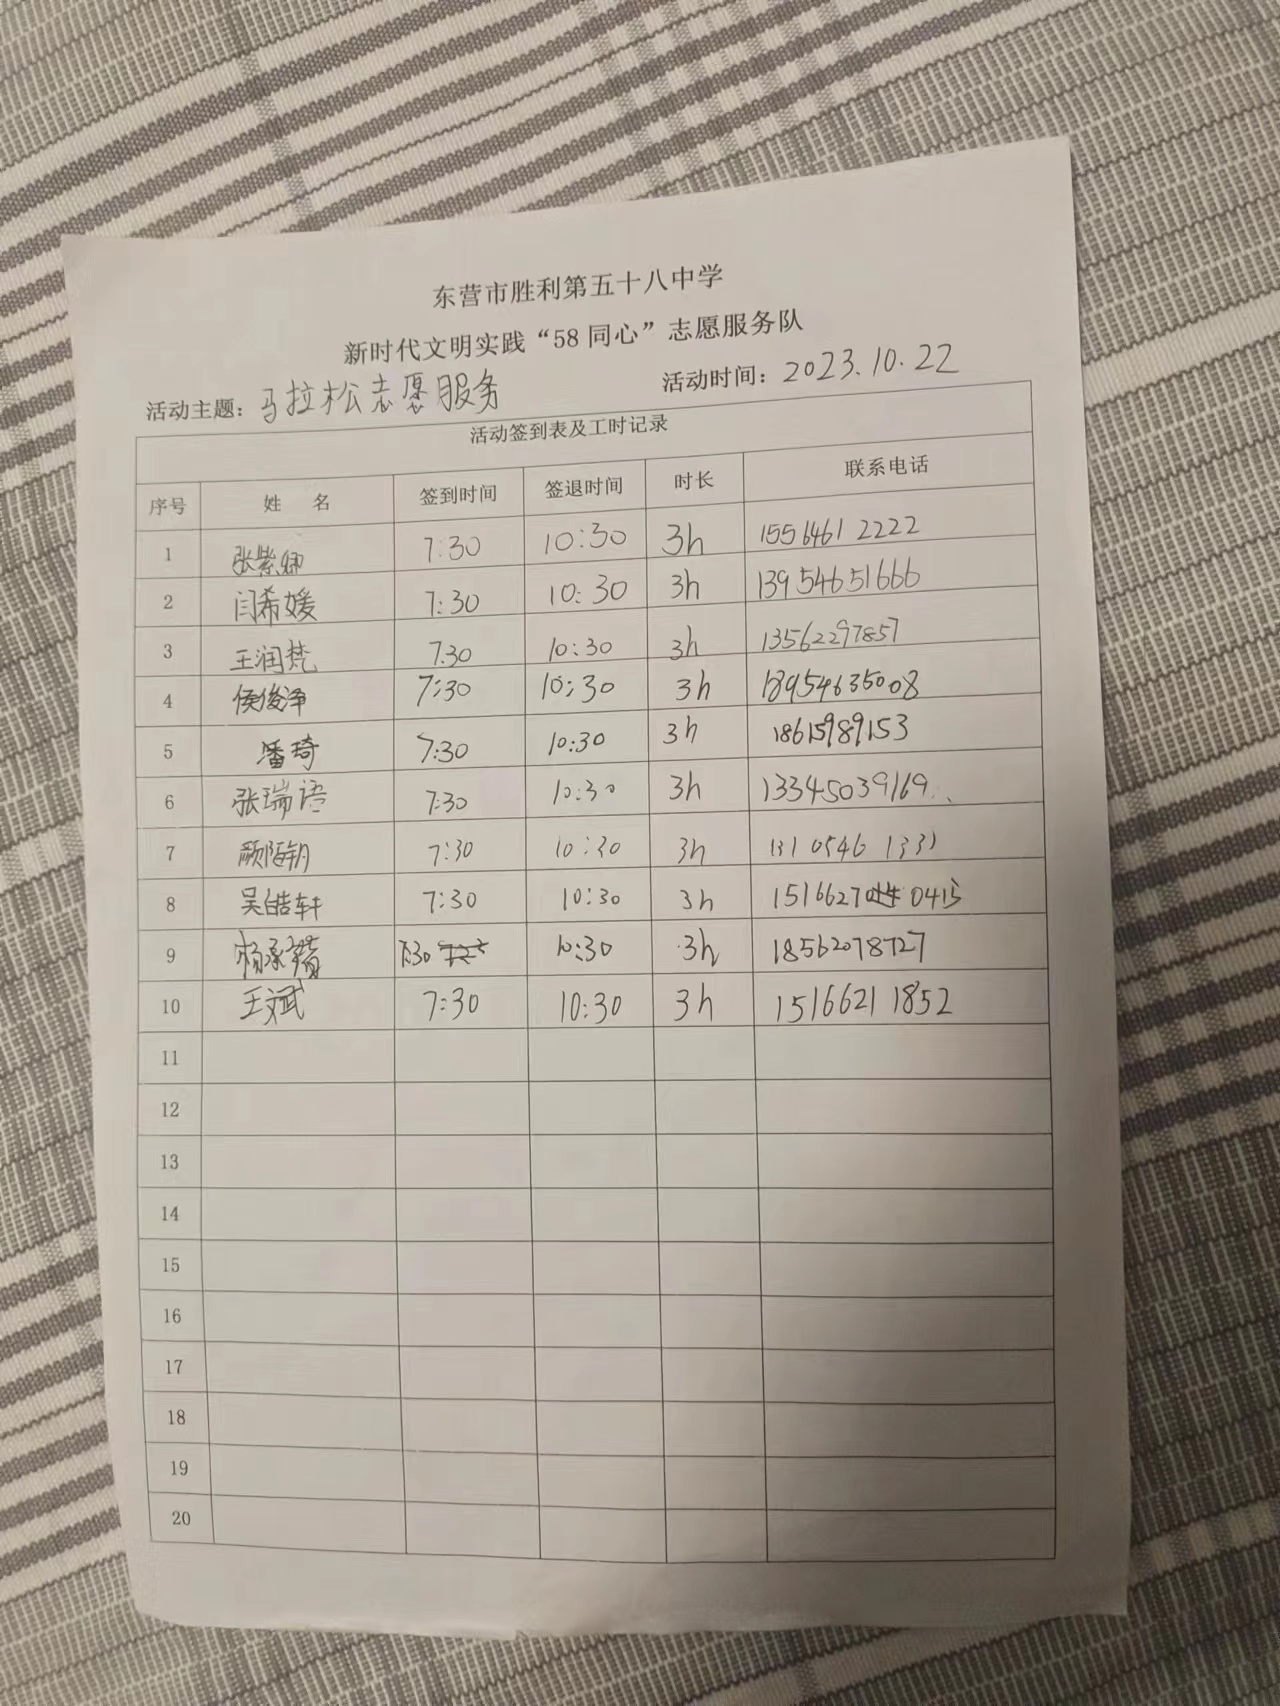 东营市胜利第五十八中学
新时代文明实践“58同心”志愿服务队
活动主题：马拉松志愿服务 活动时间：2023.10.22
活动签到表及工时记录
序号 姓 名 签到时间 签退时间 时长 联系电话
1 张紫娜 7:30 10:30 3h 15564612222
2 闫希媛 7:30 10:30 3h 13954651666
3 王润梵 7.30 10:30 3h 13562297857
4 侯俊泽 7:30 10:30 3h 18954635008
5 潘琦 7:30 10:30 3h 18615989153
6 张瑞语 7:30 10:30 3h 13345039169
7 7:30 10:30 3h 131 0546 1331
8 吴皓轩 7:30 10:30 3h 1516627 0415
9 7:30 10:30 3h 18562078727
10 王斌 7:30 10:30 3h 15166211852
11
12
13
14
15
16
17
18
19
20